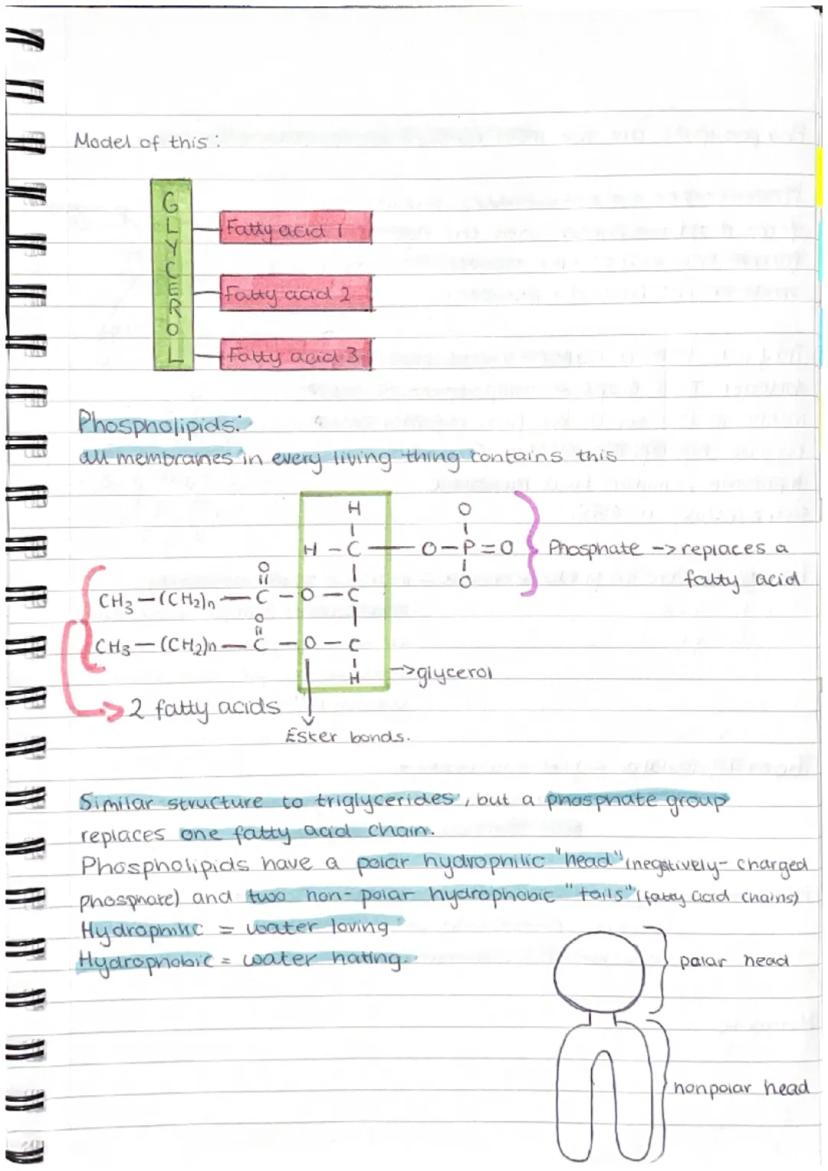 Model of this:
GLYCEROL
Fatty acid 1
Fatty acid 2
Fatty acid 3
Phospholipids:
all membranes in every living thing contains this
H O
H - C - O - P = O Phosphate -> replaces a
O O fatty acid
CH3 - (CH2)n - C - O - C
O
CH3 - (CH2)n - C - O - C
H -> glycerol
2 fatty acids
Ester bonds.
Similar structure to triglycerides, but a phosphate group
replaces one fatty acid chain.
Phospholipids have a polar hydrophilic "head" (negatively-charged
phosphate) and two non-polar hydrophobic "tails" (fatty acid chains)
Hydrophilic = water loving
Hydrophobic = water hating.
polar head
nonpolar head